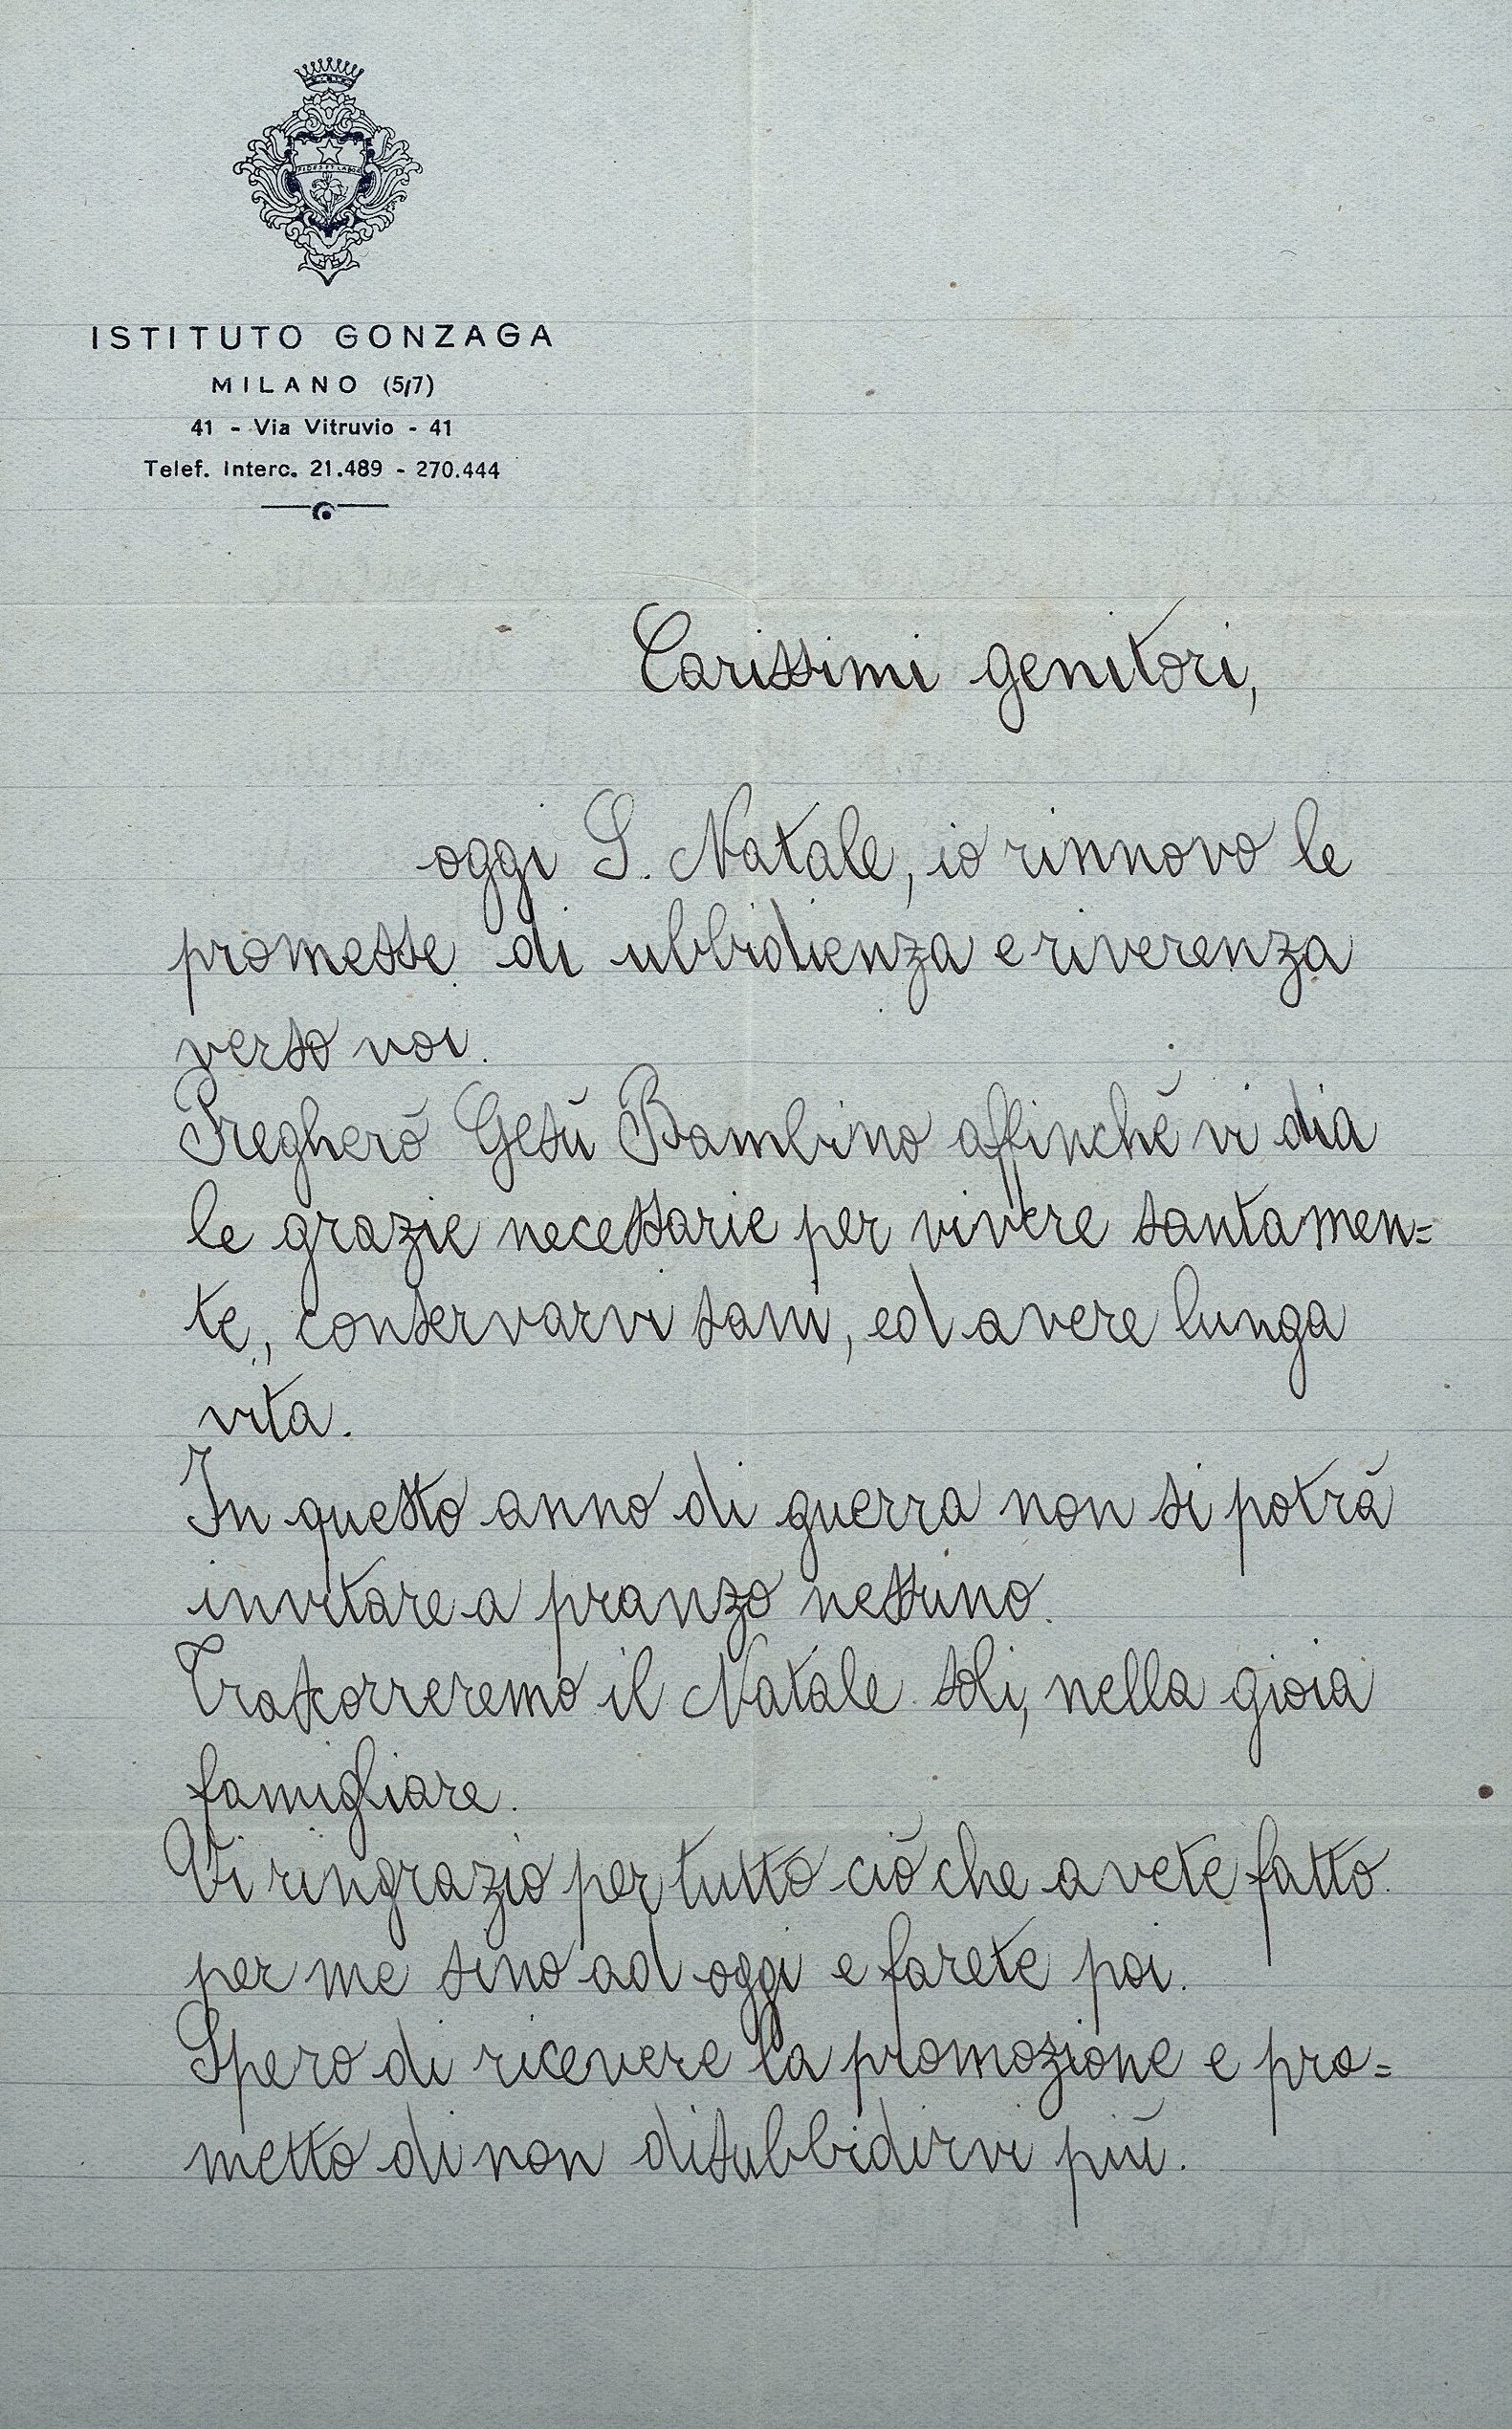 FIDES ET LABOR
ISTITUTO GONZAGA
MILANO (5/7)
41 - Via Vitruvio - 41
Telef. Interc. 21.489 - 270.444
Carissimi genitori,
oggi S. Natale, io rinnovo le
promesse di ubbidienza e riverenza
verso voi.
Pregherò Gesù Bambino affinché vi dia
le grazie necessarie per vivere santamen=
te, conservarvi sani, ed avere lunga
vita.
In questo anno di guerra non si potrà
invitare a pranzo nessuno.
Trascorreremo il Natale soli, nella gioia
famigliare.
Vi ringrazio per tutto ciò che avete fatto
per me sino ad oggi e farete poi.
Spero di ricevere la promozione e pro=
metto di non disubbidirvi più.